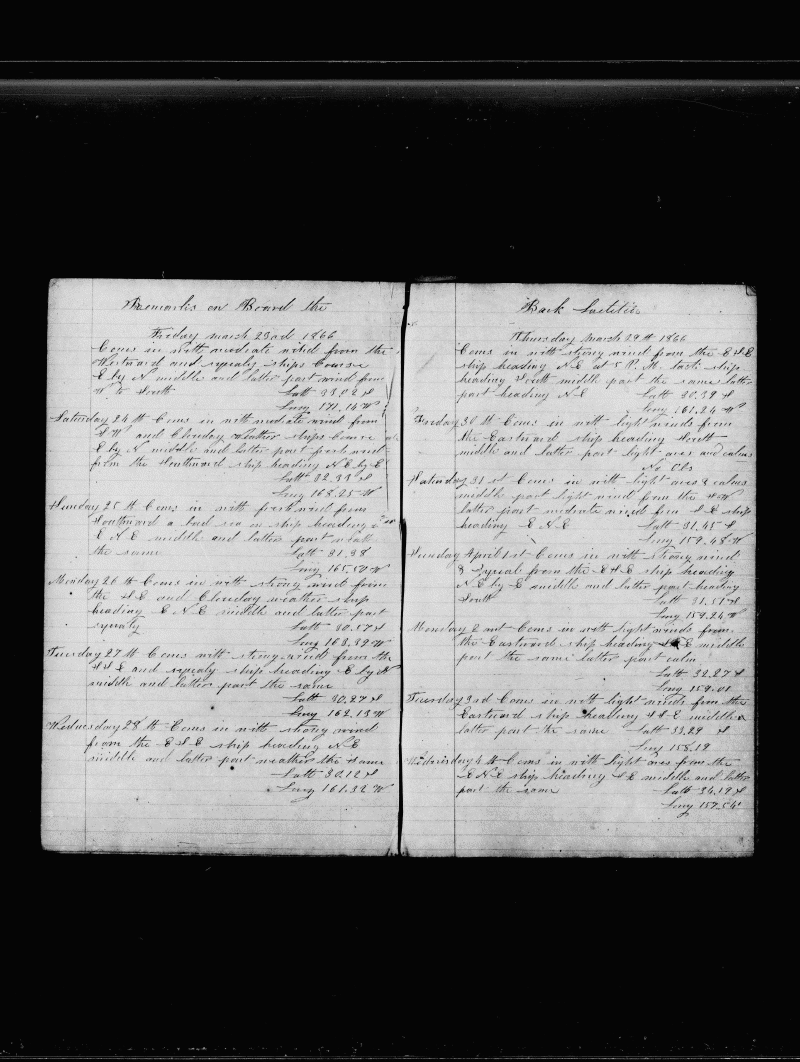 Remarks on Board the
Friday march 23rd 1866
Coms in with moderate wind from the
Westward and squaly ships Course
E by N middle and latter part wind from
W to South Latt 33.02 S
Long 171.14 W
Saturday 24th Coms in with modiate wind from
S W and Clouday weather ships Course
E by N middle and latter part fresh wind
from the Southward ship heading N E by E
Latt 32.33 S
Long 168.25 W
Sunday 25th Coms in with fresh wind from
Southward a bad sea on ship heading
E N E middle and latter part weath
the same Latt 31.38
Long 165.50 W
Monday 26th Coms in with strong wind from
the S E and Clouday weather ship
heading E N E middle and latter part
squaly Latt 30.57 S
Long 163.39 W
Tuesday 27th Coms with strong winds from the
S S E and squaly ship heading E by N
middle and latter part the same
Latt 30.27 S
Long 162.13 W
Wednesday 28th Coms in with strong wind
from the E S E ship heading N E
middle and latter part weather the same
Latt 30.12 S
Long 161.32 W
Bark Laetitia
Thursday march 29th 1866
Coms in with strong wind from the E S E
ship heading N E at 5 P.M. tack ship
heading South middle part the same latter
part heading N E Latt 30.39 S
Long 161.24 W
Friday 30th Coms in with light winds from
the Eastward ship heading South
middle and latter part light aires and calms
No Obs
Saturday 31st Coms in with light aires & calms
middle part light wind from the S W
latter part modirate wind from S E ship
heading E N E Latt 31.45 S
Long 159.48 W
Sunday April 1st Coms in with strong wind
& Squals from the E S E ship heading
N E by E middle and latter part heading
South Latt 31.51 S
Long 159.24 W
Monday 2nd Coms in with light winds from
the Eastward ship heading S S E middle
part the same latter part calm
Latt 32.27 S
Long 159.01
Tuesday 3rd Coms in with light winds from the
Eastward ship heading S S E middle &
latter part the same Latt 33.29 S
Long 158.19
Wednesday 4th Coms in with light aires from the
E N E ship heading S E middle and latter
part the same Latt 34.19 S
Long 157.54